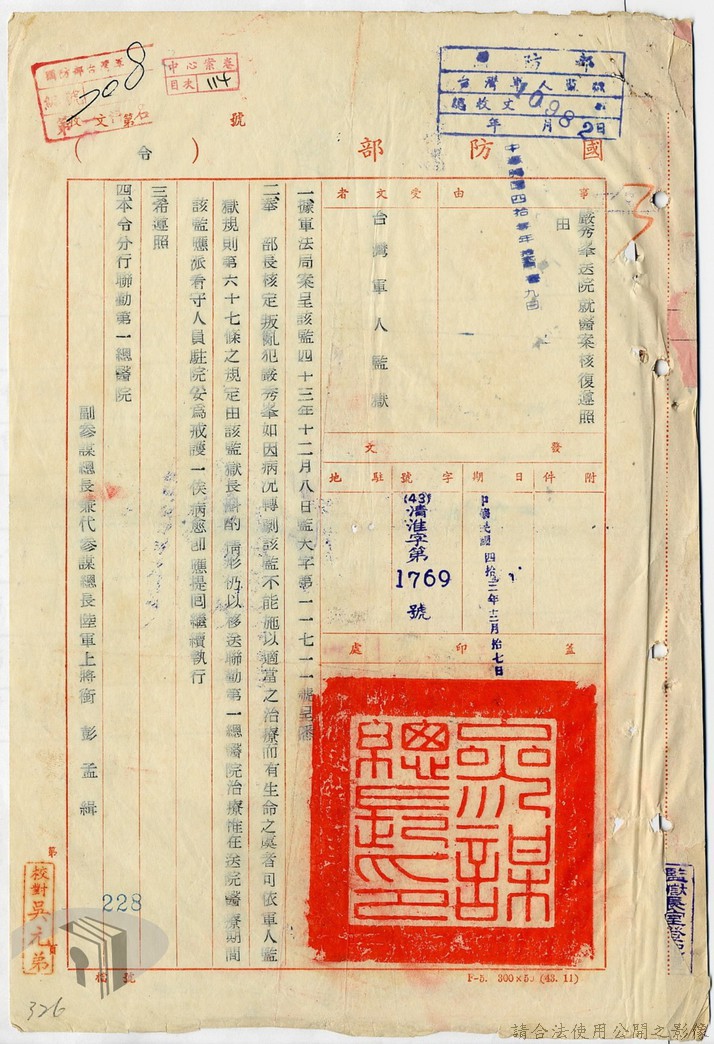 國防部
(令)
事由
嚴秀峯送院就醫案核復遵照
由
受文者
台灣軍人監獄
發文
附件
日期
中華民國四拾三年十二月拾七日
字號
(43)清淮字第
1769
號
駐地
蓋印處
參謀總長之印
一據軍法局案呈該監四十三年十二月八日監大字第一一七一一號呈悉
二奉 部長核定叛亂犯嚴秀峯如因病況轉劇該監不能施以適當之治療而有生命之虞者可依軍人監
獄規則第六十七條之規定由該監獄長斟酌情形仍以移送聯勤第一總醫院治療惟在送院醫療期間
該監應派看守人員駐院妥為戒護一俟病愈即應提回繼續執行
三希遵照
四本令分行聯勤第一總醫院
副參謀總長兼代參謀總長陸軍上將銜 彭孟緝
國防部
台灣軍人監獄
總收文
年 月 日
中心案卷
目次 114
208
號
第
228
頁
校對吳元弟
檔號
F-5. 300×50 (43. 11)
監獄長室登記
326
請合法使用公開之影像